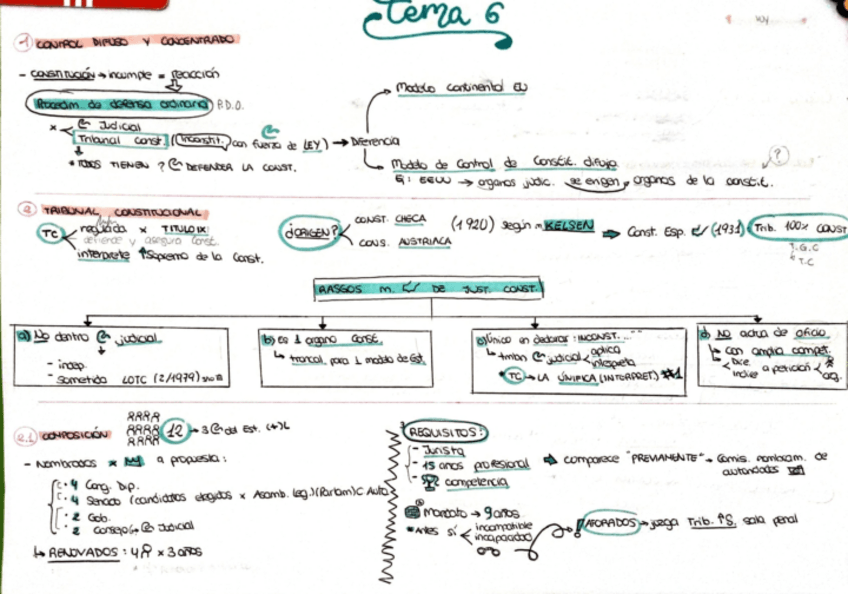 Tema 6
1 CONTROL DIFUSO Y CONCENTRADO
- CONSTITUCIÓN → incumple = reacción
Procedim. de defensa ordinaria P.D.O.
Judicial
Tribunal const. (Inconstit. con fuerza de LEY) → Diferencia
* TODOS TIENEN ? DEFENDER LA CONST.
Modelo continental EU
Modelo de Control de Constit. difuso
Ej: EEUU → organos judic. se erigen organos de la constit.
?
2 TRIBUNAL CONSTITUCIONAL
TC
regulada x TITULO IX
defiende y asegura Const.
interprete ↑Supremo de la Const.
¿ORIGEN?
CONST. CHECA
CONS. AUSTRIACA
(1920) según KELSEN ⇒ Const. Esp. (1931) Trib. 100% CONST
T.G.C
T.C
RASGOS M. DE JUST. CONST.
a) No dentro judicial
- indep.
- sometida LOTC (2/1979)
b) es 1 organo const.
↳ troncal para 1 modelo de Est.
c) Único en declarar: INCONST...
↳ tmbn judicial aplica
interpreta
* TC → LA ÚNIFICA (INTERPRET.) #1
d) NO actua de oficio
↳ con amplia compet.
Dice
indice a petición org.
2.1 COMPOSICIÓN
12 → 3 del Est. (+)L
- Nombrados x a propuesta:
· 4 Cong. Dip.
· 4 Senado (candidatos elegidos x Asamb. Leg.) (Parlam) C. Auto.
· 2 Gob.
· 2 Consejo Judicial
↳ RENOVADOS: 4 x 3 años
REQUISITOS:
- Jurista
- 15 anos profesional
- competencia
⇒ comparece "PREVIAMENTE" → Comis. nombram. de
autoridades
Mandato → 9 años
* Antes sí
incompatible
incapacidad
AFORADOS → juzga Trib. ↑S. sala penal